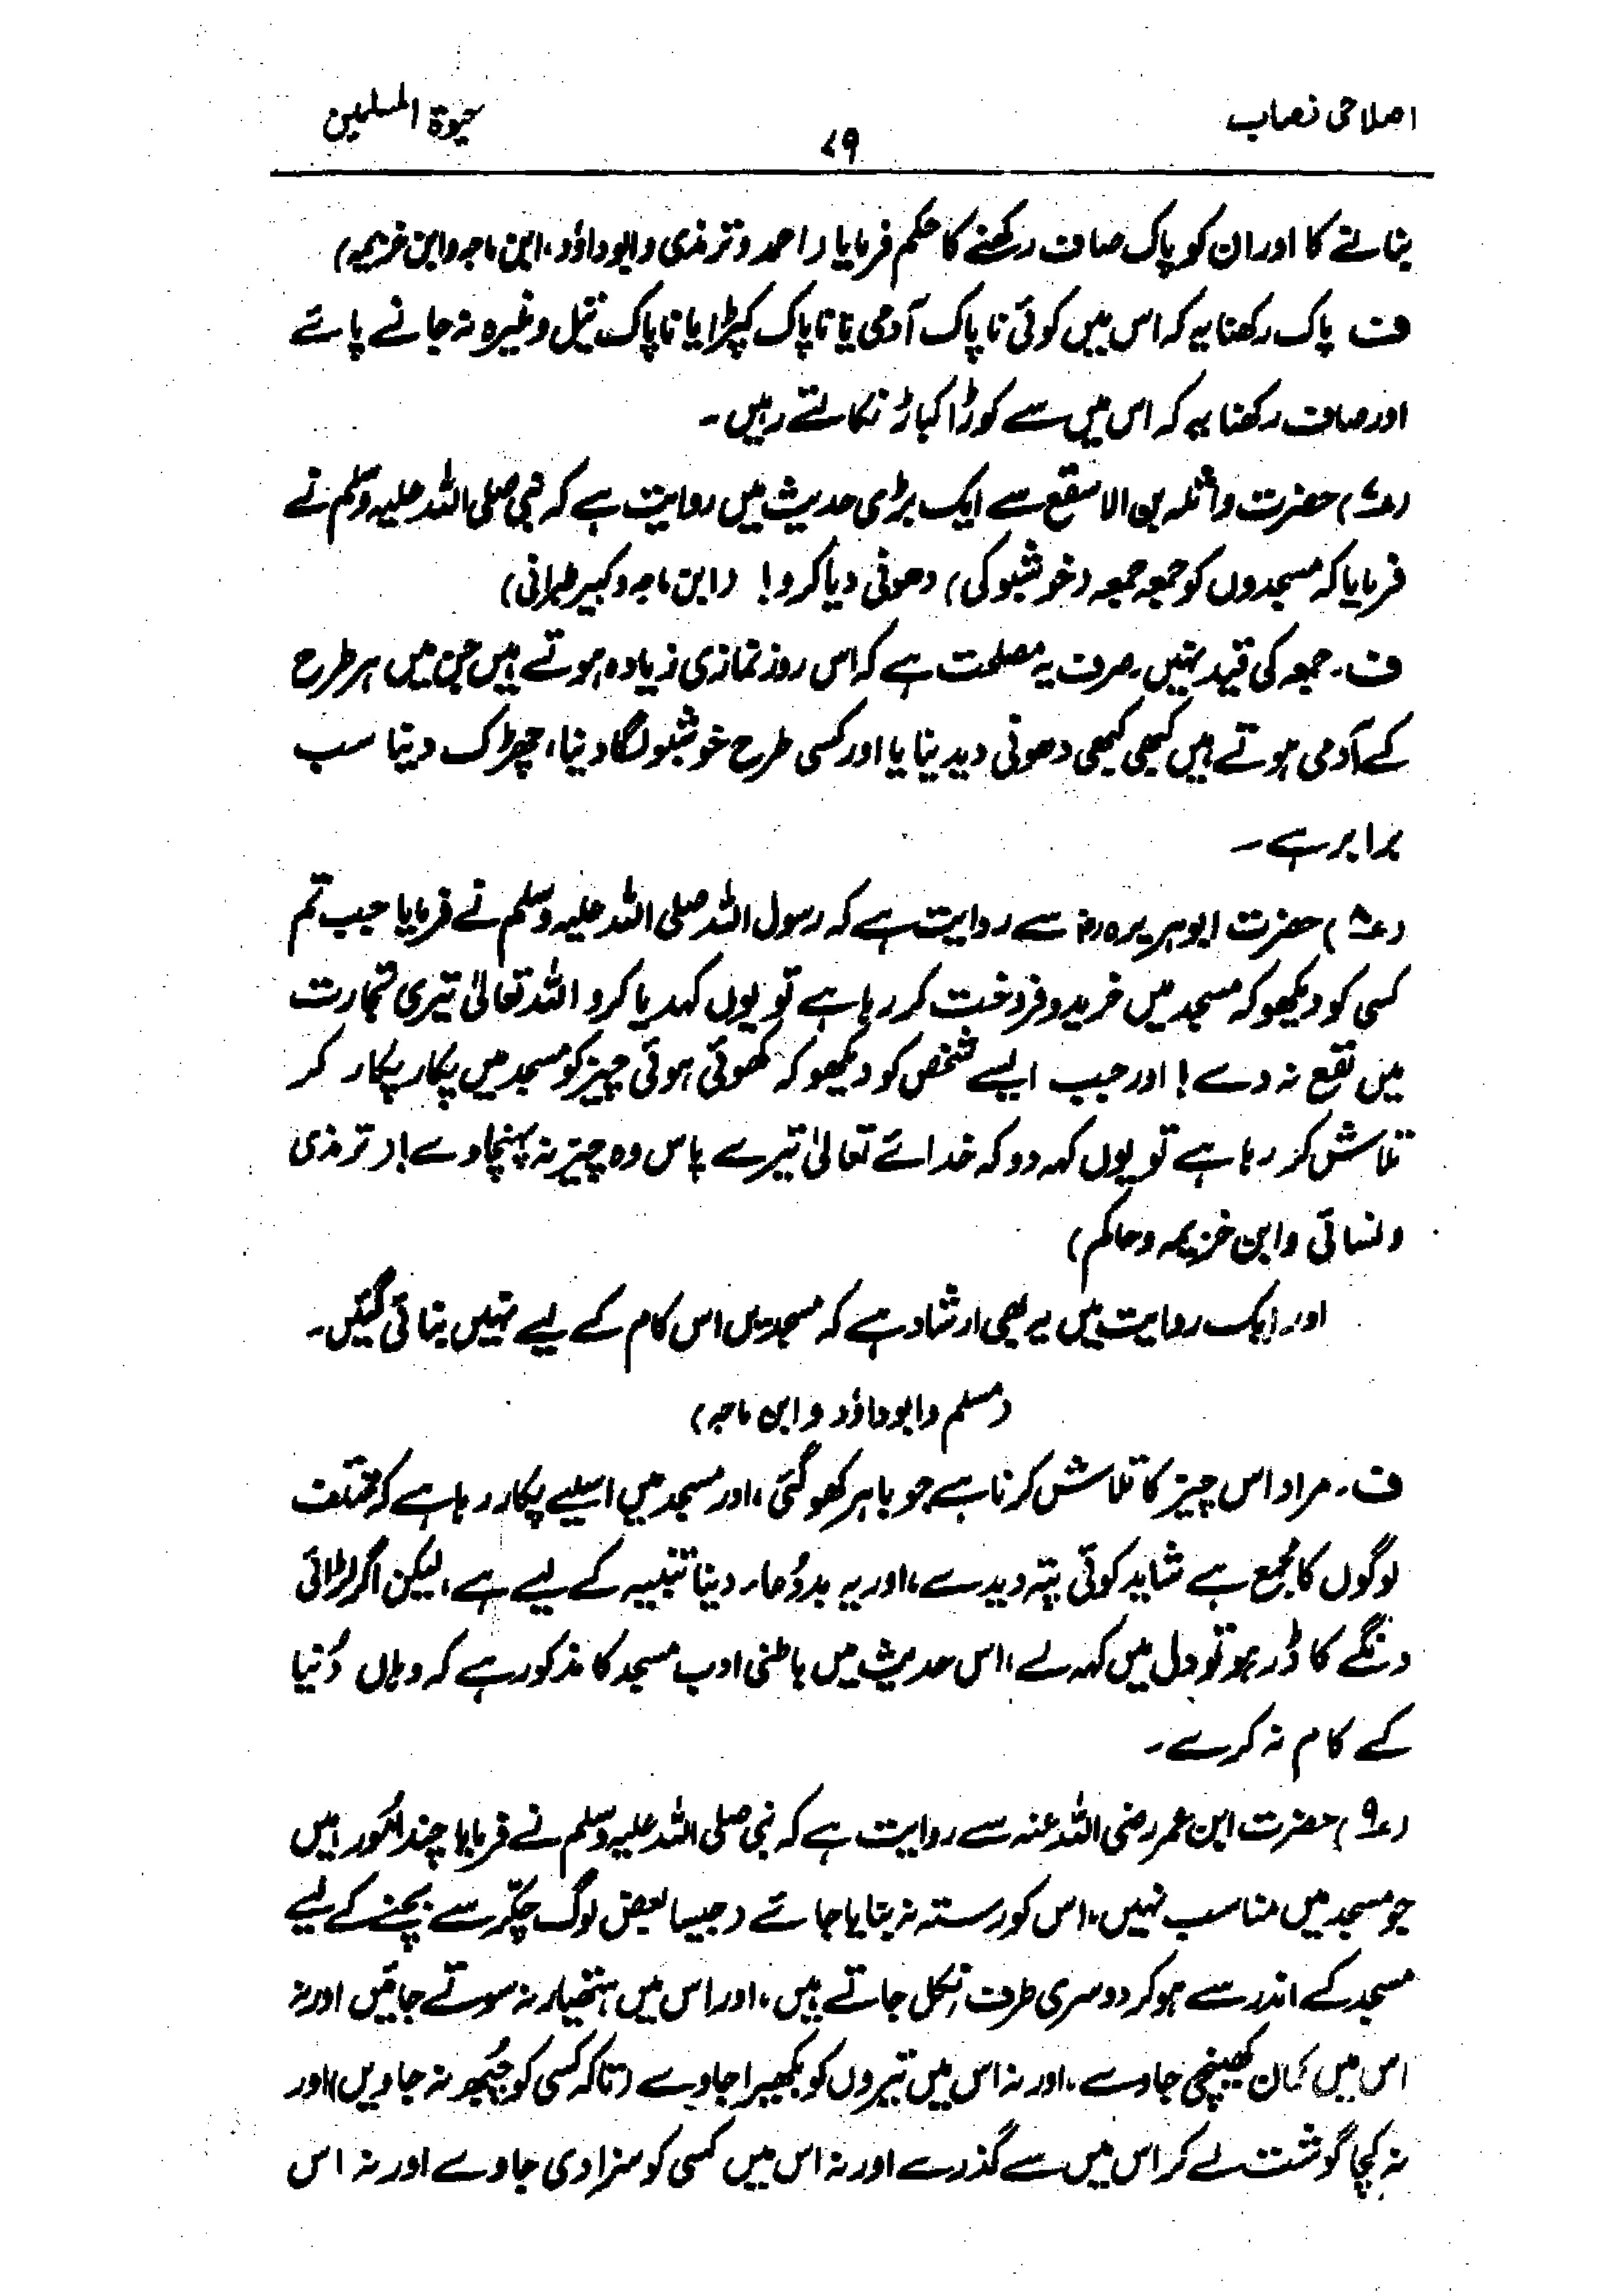 اصلاحی نصاب
۷۹
حیوٰۃ المسلمین
بنانے کا اور ان کو پاک صاف رکھنے کا حکم فرمایا (احمد و ترمذی و ابوداؤد، ابن ماجہ و ابن خزیمہ)
ف پاک رکھنا یہ کہ اس میں کوئی ناپاک آدمی یا ناپاک کپڑا یا ناپاک تیل وغیرہ نہ جانے پائے
اور صاف رکھنا یہ کہ اس میں سے کوڑا کباڑ نکالتے رہیں۔
(۷ـ) حضرت واثلہ بن الاسقع سے ایک بڑی حدیث میں روایت ہے کہ نبی صلی اللہ علیہ وسلم نے
فرمایا کہ مسجدوں کو جمعہ جمعہ (خوشبو کی) دھونی دیا کرو! (ابن ماجہ و کبیر طبرانی)
ف۔ جمعہ کی قید نہیں۔ صرف یہ مصلحت ہے کہ اس روز نمازی زیادہ ہوتے ہیں جن میں ہر طرح
کے آدمی ہوتے ہیں کبھی کبھی دھونی دیدینا یا اور کسی طرح خوشبو لگا دینا، چھڑک دینا سب
برابر ہے۔
(۸ـ) حضرت ابوہریرہ رضؓ سے روایت ہے کہ رسول اللہ صلی اللہ علیہ وسلم نے فرمایا جب تم
کسی کو دیکھو کہ مسجد میں خرید و فروخت کر رہا ہے تو یوں کہدیا کرو اللہ تعالیٰ تیری تجارت
میں نفع نہ دے! اور جب ایسے شخص کو دیکھو کہ کھوئی ہوئی چیز کو مسجد میں پکار پکار کر
تلاش کر رہا ہے تو یوں کہہ دو کہ خدائے تعالیٰ تیرے پاس وہ چیز نہ پہنچاوے! (ترمذی
و نسائی و ابن خزیمہ و حاکم)
اور ایک روایت میں یہ بھی ارشاد ہے کہ مسجدیں اس کام کے لیے نہیں بنائی گئیں۔
(مسلم و ابوداؤد و ابن ماجہ)
ف۔ مراد اس چیز کا تلاش کرنا ہے جو باہر کھو گئی، اور مسجد میں اسلیے پکار رہا ہے کہ مختلف
لوگوں کا مجمع ہے شاید کوئی پتہ دیدے، اور یہ بددُعاء دینا تنبیہ کے لیے ہے، لیکن اگر لڑائی
دنگے کا ڈر ہو تو دل میں کہہ لے، اس حدیث میں باطنی ادب مسجد کا مذکور ہے کہ وہاں دُنیا
کے کام نہ کرے۔
(۹ـ) حضرت ابن عمر رضی اللہ عنہ سے روایت ہے کہ نبی صلی اللہ علیہ وسلم نے فرمایا چند اُمور ہیں
جو مسجد میں مناسب نہیں، اس کو رستہ نہ بنایا جائے (جیسا بعض لوگ چکّر سے بچنے کے لیے
مسجد کے اندر سے ہو کر دوسری طرف نکل جاتے ہیں، اور اس میں ہتھیار نہ سوتے جائیں اور نہ
اس میں کمان کھینچی جاوے، اور نہ اس میں تیروں کو بکھیرا جاوے (تاکہ کسی کو چُبھ نہ جاویں) اور
نہ کچا گوشت لے کر اس میں سے گذرے اور نہ اس میں کسی کو سزا دی جاوے اور نہ اس